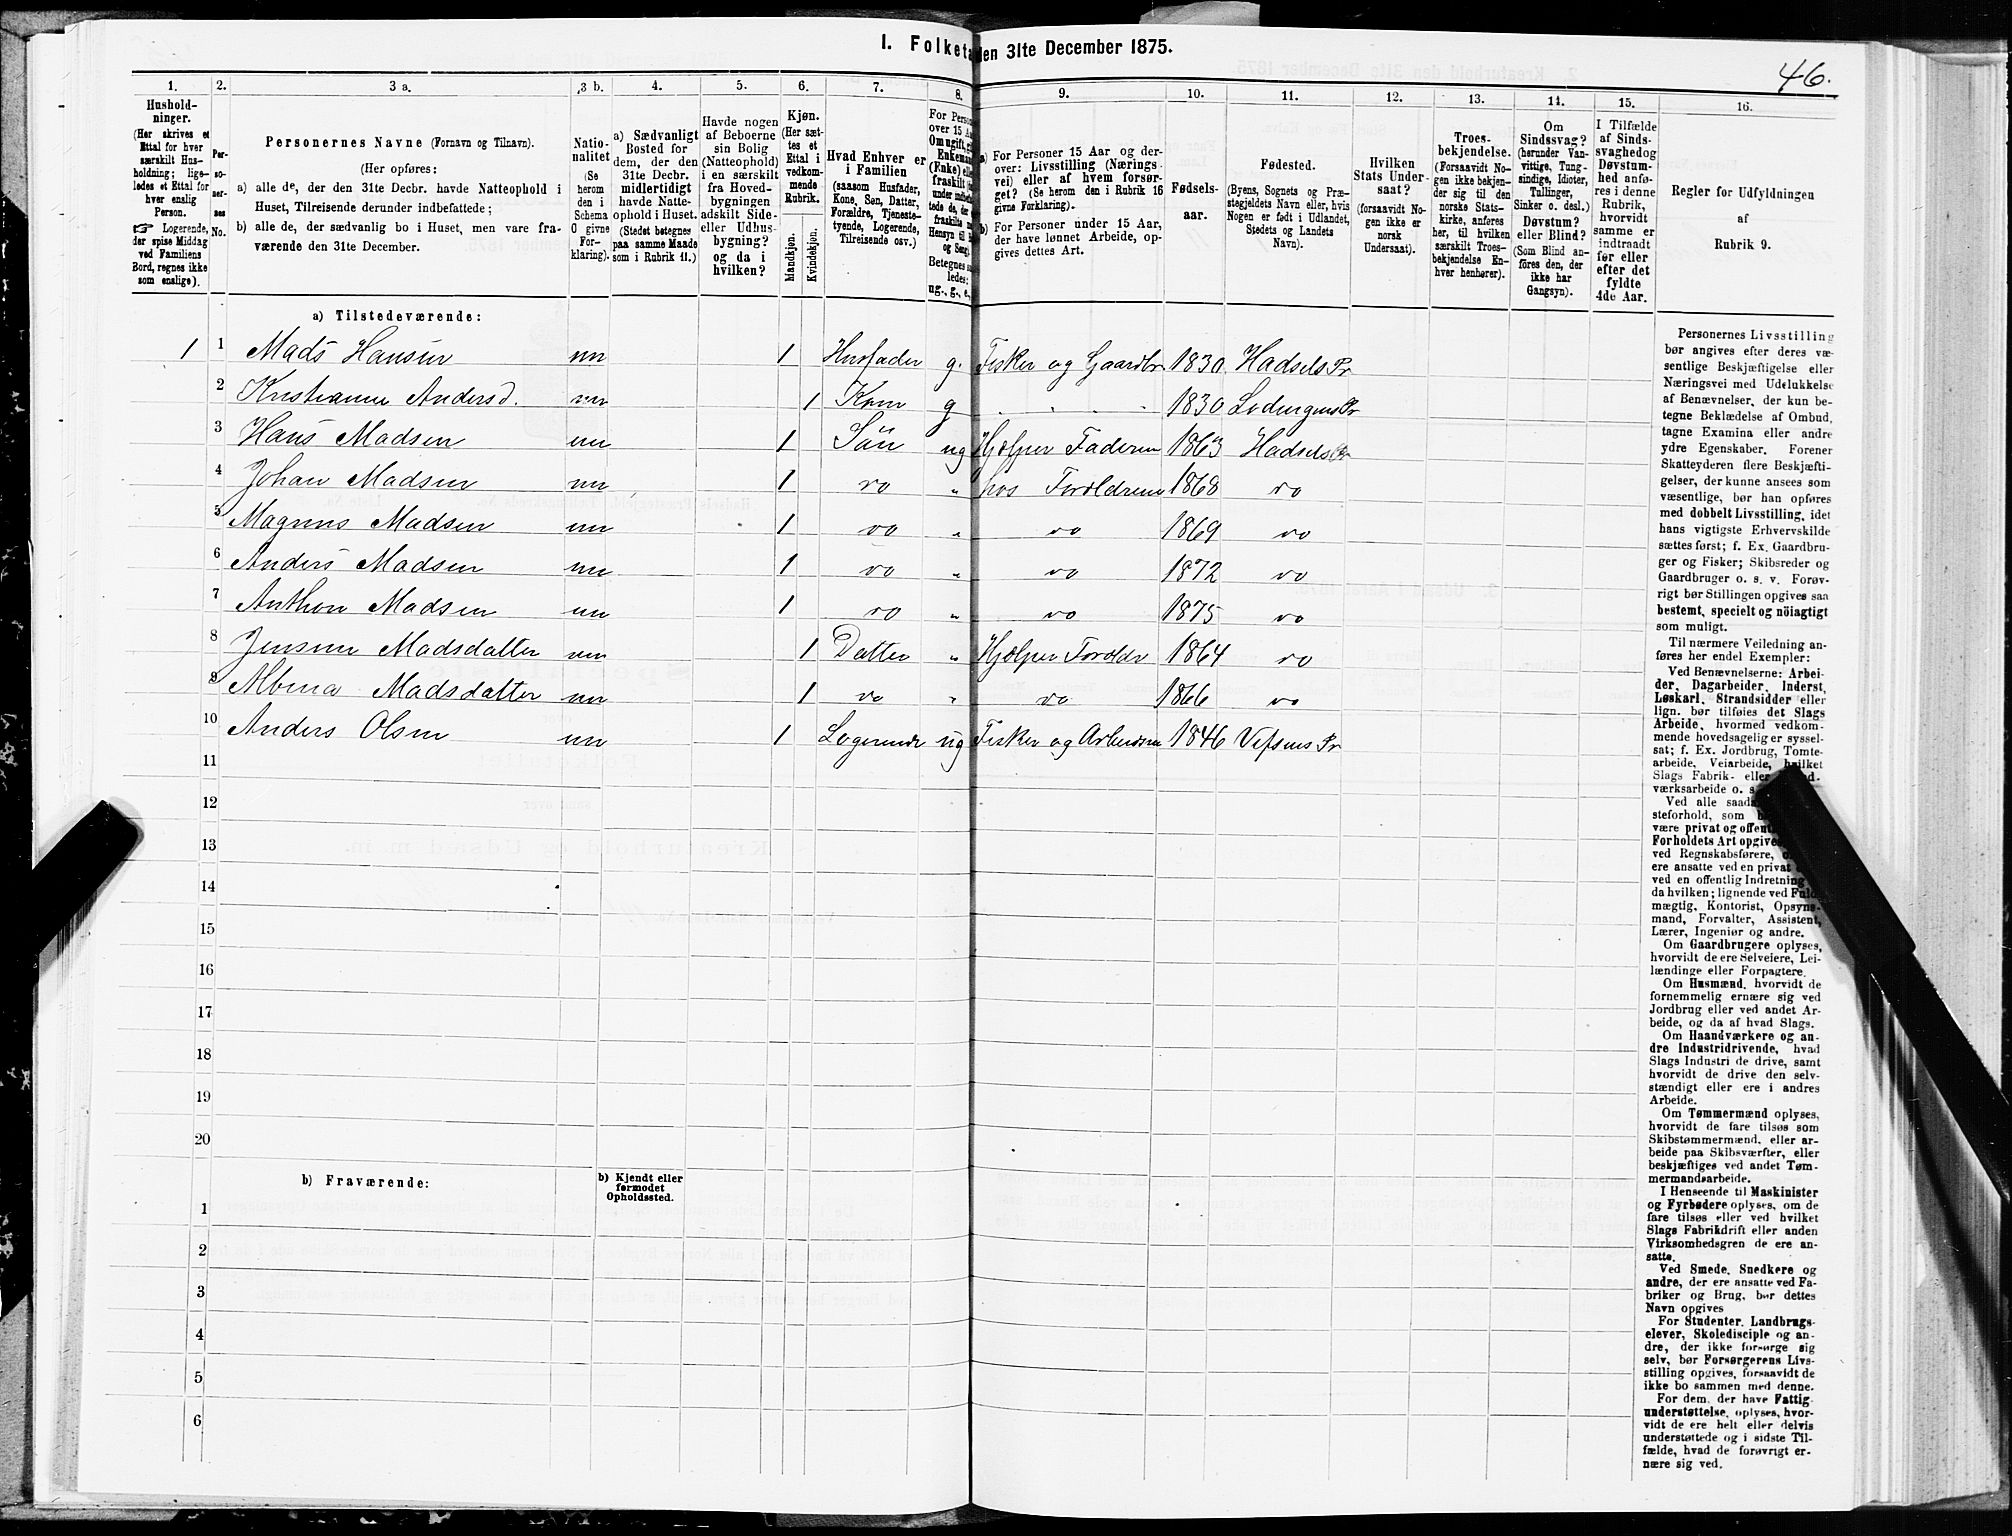 I. Folketa den 31te December 1875.
46.
1. 2. 3 a. 3 b. 4. 5. 6. 7. 8. 9. 10. 11. 12. 13. 14. 15. 16.
Hushold-
ninger.
(Her skrives et
Ettal for hver
særskilt Hus-
holdning; lige-
ledes et Ettal for
hver enslig
Person.
☞ Logerende,
der spise Middag
ved Familiens
Bord, regnes ikke
som enslige).
Per-
so-
ner-
nes
No.
Personernes Navne (Fornavn og Tilnavn).
(Her opføres:
a) alle de, der den 31te Decbr. havde Natteophold i
Huset, Tilreisende derunder indbefattede;
b) alle de, der sædvanlig bo i Huset, men vare fra-
værende den 31te December.
Natio-
nalitet
(Se
herom
den i
Schema
O givne
For-
klaring).
a) Sædvanligt
Bosted for
dem, der den
31te Decbr.
midlertidigt
havde Natte-
ophold i Huset.
(Stedet betegnes
paa samme Maade
som i Rubrik 11.)
Havde nogen
af Beboerne
sin Bolig
(Natteophold)
i en særskilt
fra Hoved-
bygningen
adskilt Side-
eller Udhus-
bygning?
og da i
hvilken?
Kjøn.
(Her sæt-
tes et
Ettal i
vedkom-
mende
Rubrik.
Mandkjøn.
Kvindekjøn.
Hvad Enhver er
i Familien
(saasom Husfader,
Kone, Søn, Datter,
Forældre, Tjeneste-
tyende, Logerende,
Tilreisende osv.)
For Perso
over 15 Aa
Om ugift, gi
Enkeman
(Enke) elle
fraskilt
under indbefat-
tede de, der
fraskilte
Hensyn til
og Seng
Betegnes s
ledes:
ug., g., e.,
a) For Personer 15 Aar og der-
over: Livsstilling (Nærings-
vei) eller af hvem forsør-
get? (Se herom den i Rubrik 16
givne Forklaring).
b) For Personer under 15 Aar,
der have lønnet Arbeide, op-
gives dettes Art.
Fødsels-
aar.
Fødested.
(Byens, Sognets og Præ-
stegjeldets Navn eller, hvis
Nogen er født i Udlandet,
Stedets og Landets
Navn).
Hvilken
Stats Under-
saat?
(forsaavidt No-
gen ikke er
norsk
Undersaat).
Troes-
bekjendelse.
(Forsaavidt No-
gen ikke bekjen-
der sig til den
norske Stats-
kirke, anføres
her, til hvilken
særskilt Troes-
bekjendelse En-
hver henhører).
Om
Sindssvag?
(herunder Van-
vittige, Tung-
sindige, Idioter,
Tullinger,
Sinker o. desl.)
Døvstum?
eller Blind?
(Som Blind an-
føres den, der
ikke har
Gangsyn).
I Tilfælde
af Sinds-
svaghedog
Døvstum-
hed anfø-
res i denne
Rubrik,
hvorvidt
samme er
indtraadt
før eller
efter det
fyldte
4de Aar.
Regler for Udfyldningen
af
Rubrik 9.
a) Tilstedeværende:
1 1 Mads Hansen nn 1 Husfader g. Fisker og Gaardbr 1830 Hadsels Pr
2 Kristianne Andersd. nn 1 Kone g " " " " 1830 Lodingens Pr
3 Hans Madsen nn 1 Sön ug Hjælper Faderen 1863 Hadsels Pr
4 Johan Madsen nn 1 do " hos Foroldrene 1868 do
5 Magnus Madsen nn 1 do " do 1869 do
6 Anders Madsen nn 1 do " do 1872 do
7 Anthon Madsen nn 1 do " do 1875 do
8 Jensine Madsdatter nn 1 Datter " Hjælper Foroldr 1864 do
9 Albina Madsdatter nn 1 do " do 1866 do
10 Anders Olsen nn 1 Logerende ug Fisker og Arbeidsm 1846 Vefsens Pr
11
12
13
14
15
16
17
18
19
20
b) Fraværende:
b) Kjendt eller
formodet
Opholdssted.
1
2
3
4
5
6
Personernes Livsstilling
bør angives efter deres væ-
sentlige Beskjæftigelse eller
Næringsvei med Udelukkelse
af Benævnelser, der kun be-
tegne Beklædelse af Ombud,
tagne Examina eller andre
ydre Egenskaber. Forener
Skatteyderen flere Beskjæfti-
gelser, der kunne ansees som
væsentlige, bør han opføres
med dobbelt Livsstilling, idet
hans vigtigste Erhvervskilde
sættes først; f. Ex. Gaardbru-
ger og Fisker; Skibsreder og
Gaardbruger o. s. v. Forøv-
rigt bør Stillingen opgives saa
bestemt, specielt og nöiagtigt
som muligt.
Til nærmere Veiledning an-
føres her endel Exempler:
Ved Benævnelserne: Arbei-
der, Dagarbeider, Inderst,
Løskarl, Strandsidder eller
lign. bør tilføies det Slags
Arbeide, hvormed vedkom-
mende hovedsagelig er syssel-
sat; f. Ex. Jordbrug, Tomte-
arbeide, Veiarbeide, hvilket
Slags Fabrik- eller nd-
værksarbeide o. s.
Ved alle saada
steforhold, som
være privat og offent
Forholdets Art opgives
ved Regnskabsførere,
ere ansatte ved en privat
ved en offentlig Indretning
da hvilken; lignende ved Fuld-
mægtig, Kontorist, Opsyns-
mand, Forvalter, Assistent,
Lærer, Ingeniør og andre.
Om Gaardbrugere oplyses,
hvorvidt de ere Selveiere, Lei-
lændinge eller Forpagtere.
Om Husmænd, hvorvidt de
fornemmelig ernære sig ved
Jordbrug eller ved andet Ar-
beide, og da af hvad Slags.
Om Haandværkere og an-
dre Industridrivende, hvad
Slags Industri de drive, samt
hvorvidt de drive den selv-
stændigt eller ere i andres
Arbeide.
Om Tømmermænd oplyses,
hvorvidt de fare tilsøs som
Skibstømmermænd, eller ar-
beide paa Skibsværfter, eller
beskjæftiges ved andet Tøm-
mermandsarbeide.
I Henseende til Maskinister
og Fyrbødere oplyses, om de
fare tilsøs eller ved hvilket
Slags Fabrikdrift eller anden
Virksomhedsgren de ere an-
satte.
Ved Smede, Snedkere og
andre, der ere ansatte ved Fa-
briker og Brug, bør dettes
Navn opgives
For Studenter, Landbrugs-
elever, Skoledisciple og an-
dre, der ikke forsørge sig
selv, bør Forsørgerens Livs-
stilling opgives, forsaavidt de
ikke bo sammen med denne.
For dem, der have Fattig-
understøttelse, oplyses, hvor-
vidt de ere helt eller delvis
understøttede og i sidste Til-
fælde, hvad de forøvrigt er-
nære sig ved.